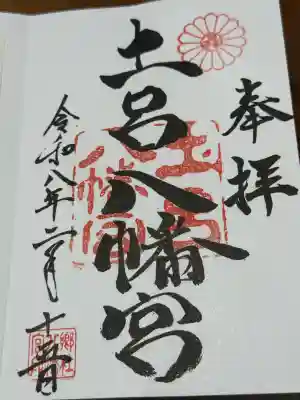 奉拝
土呂八幡宮
土呂
八幡宮
令和八年二月十五日
郷社